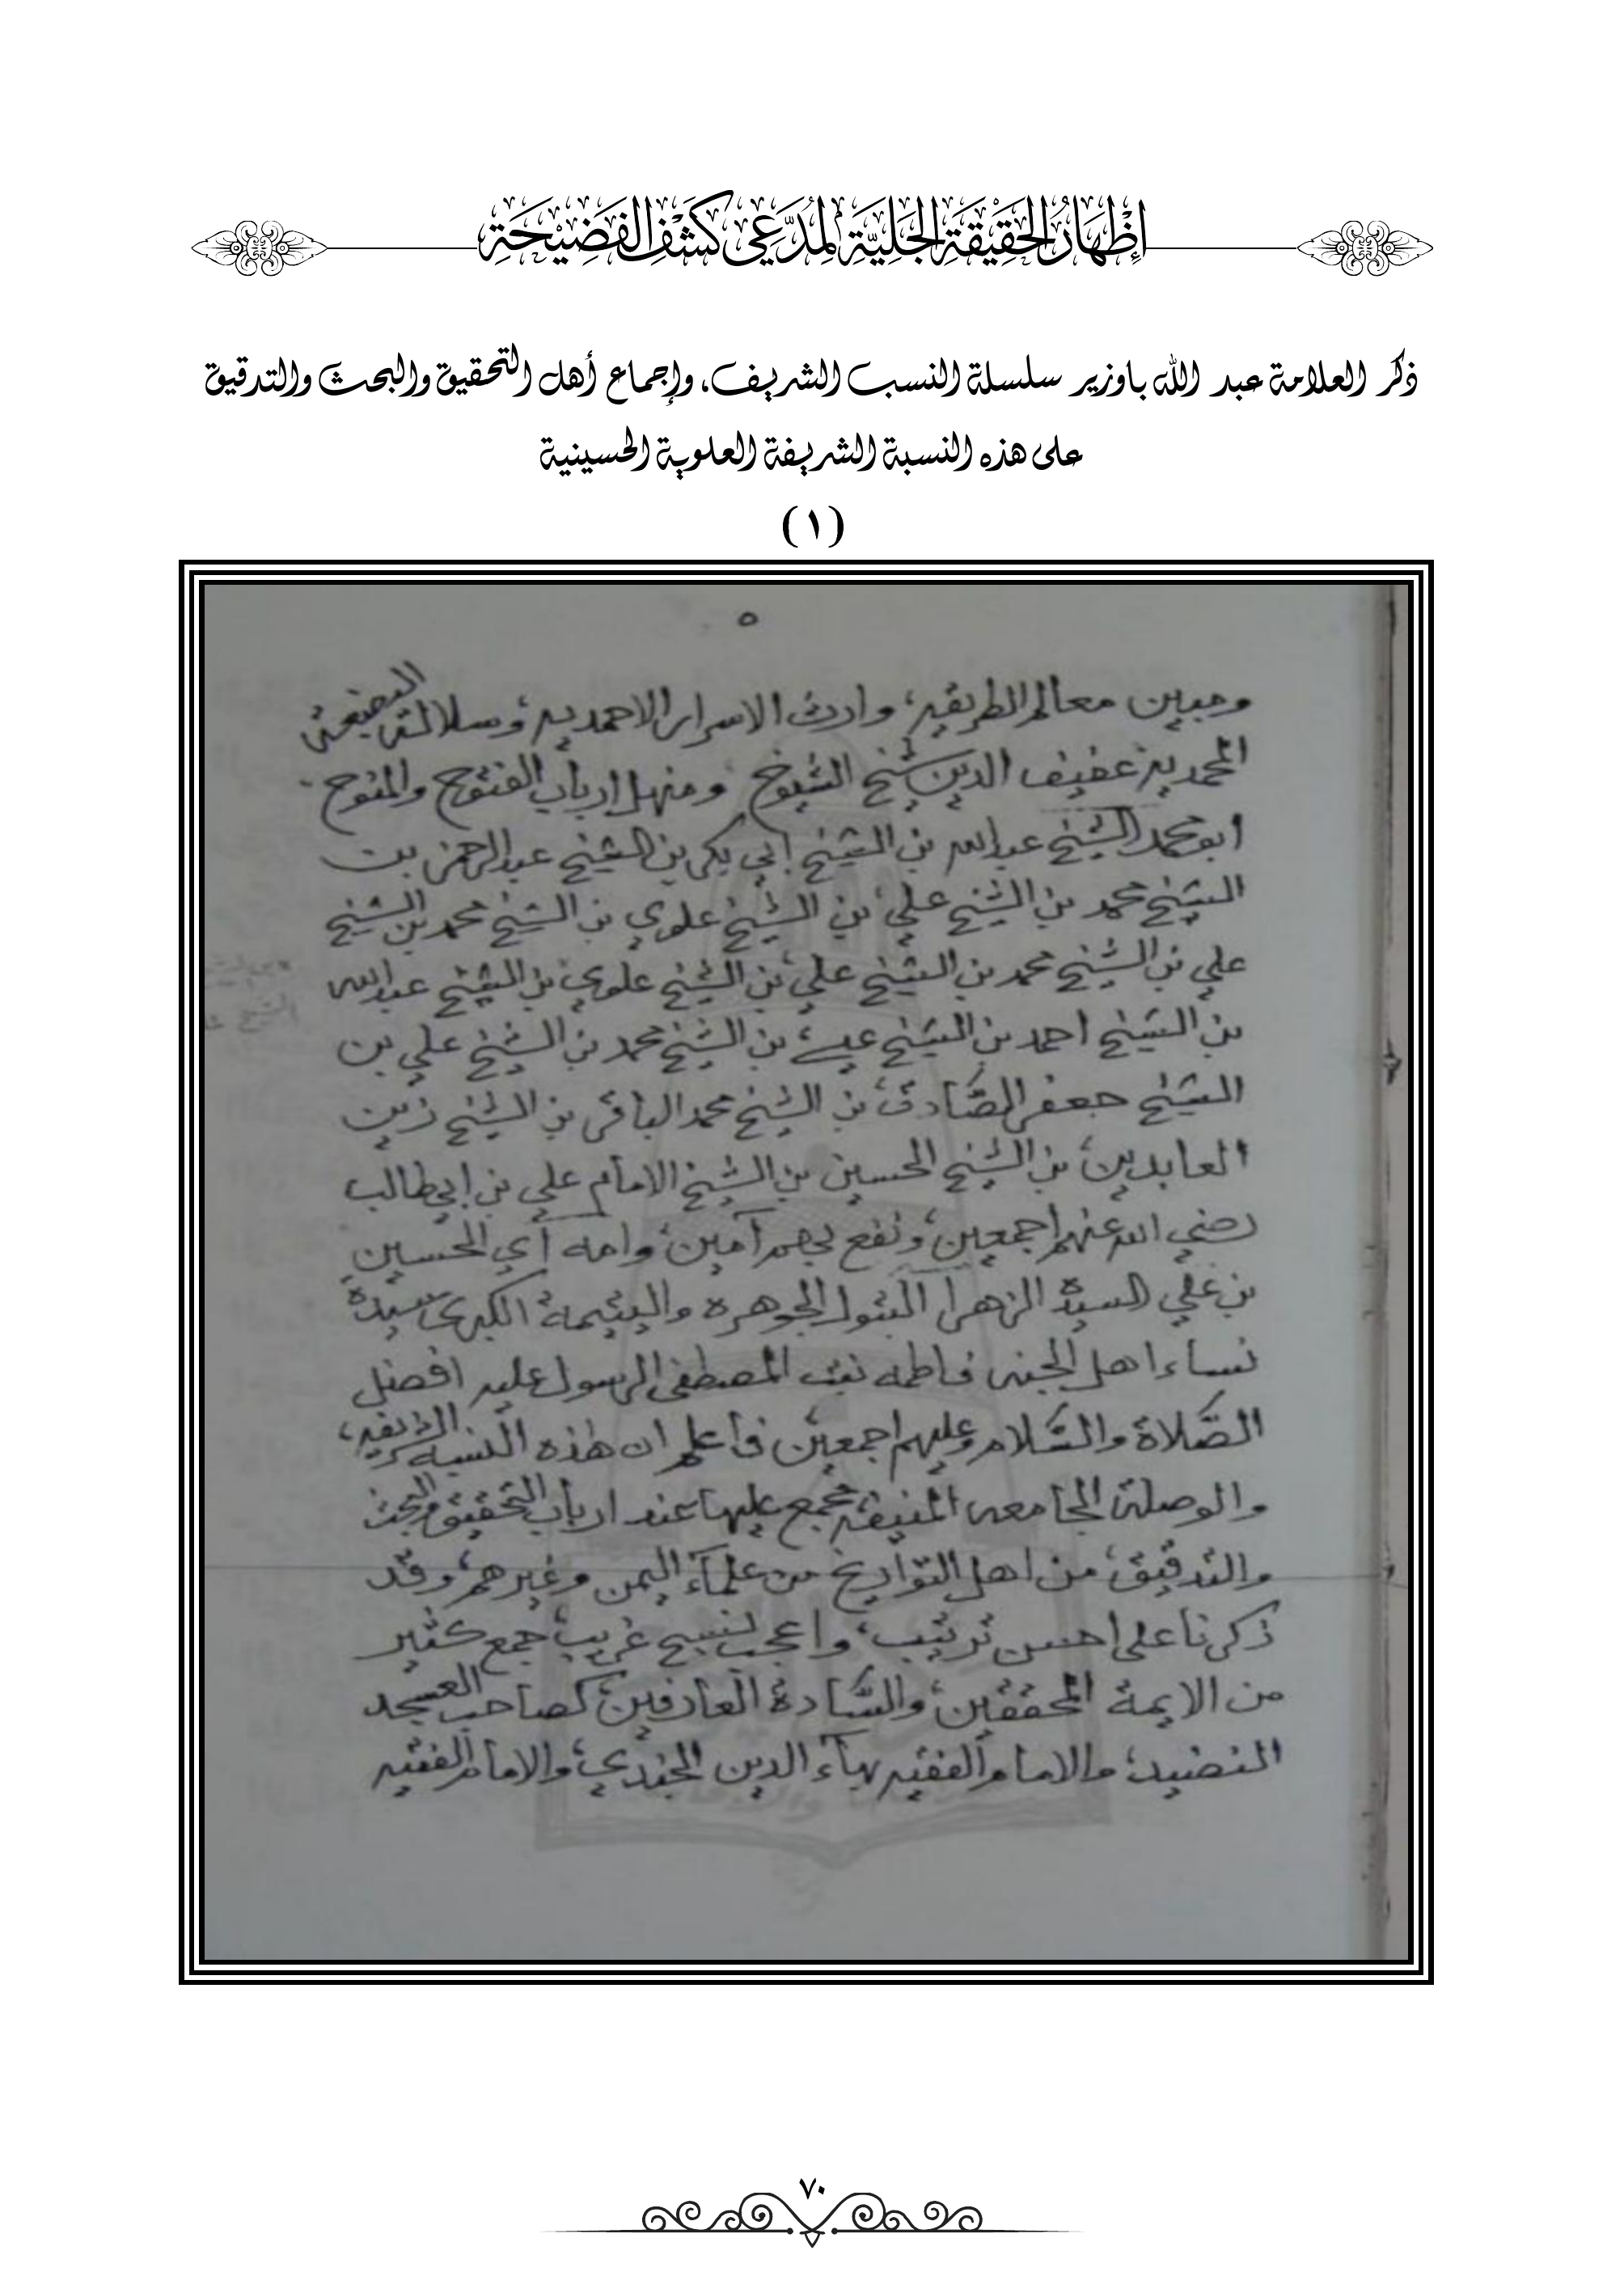 إِظْهَارُ الحَقِيْقَةِ الجَلِيَّةِ لِمُدَّعِي كَشْفِ الفَضِيْحَةِ
ذكر العلامة عبد الله باوزير سلسلة النسب الشريف، وإجماع أهل التحقيق والبحث والتدقيق
على هذه النسبة الشريفة العلوية الحسينية
(١)
٥
ومبين معالم الطريقه، وارث الاسرار الاحمديه، وسلالة البضعة
المحمديه عفيف الدين شيخ الشيوخ ومنهل ارباب الفتوح والمنوح
ابو محمد الشيخ عبدالله بن الشيخ ابي بكر بن الشيخ عبدالرحمن بن
الشيخ محمد بن الشيخ علي، بن الشيخ علوي بن الشيخ محمد بن الشيخ
علي بن الشيخ محمد بن الشيخ علي، بن الشيخ علوي، بن الشيخ عبدالله
بن الشيخ احمد بن الشيخ عيسى، بن الشيخ محمد بن الشيخ علي بن
الشيخ جعفر الصَّادق، بن الشيخ محمد الباقر بن الشيخ زين
العابدين، بن الشيخ الحسين بن الشيخ الامام علي بن ابي طالب
رضي الله عنهم اجمعين، ونفع بهم آمين، وامه آي الحسين
بن علي السيدة الزهرا البتول الجوهره واليتيمة الكبرى سيدة
نساء اهل الجنه فاطمه بنت المصطفى الرسول عليه افضل
الصَّلاة والسَّلام وعليهم اجمعين، فاعلم ان هذه النسبه الشريفه،
والوصلة الجامعه المنيفه مجمع عليها عند ارباب التحقيق والبحث
والتدقيق، من اهل التواريخ من علمآء اليمن وغيرهم، وقد
ذكرنا على احسن ترتيب، واعجب نسج غريب، جمع كثير
من الايمة المحققين، والسَّادة العارفين، كصاحب العسجد
النضيد، والامام الفقيه بهآء الدين الجندي، والامام الفقيه
٧٠